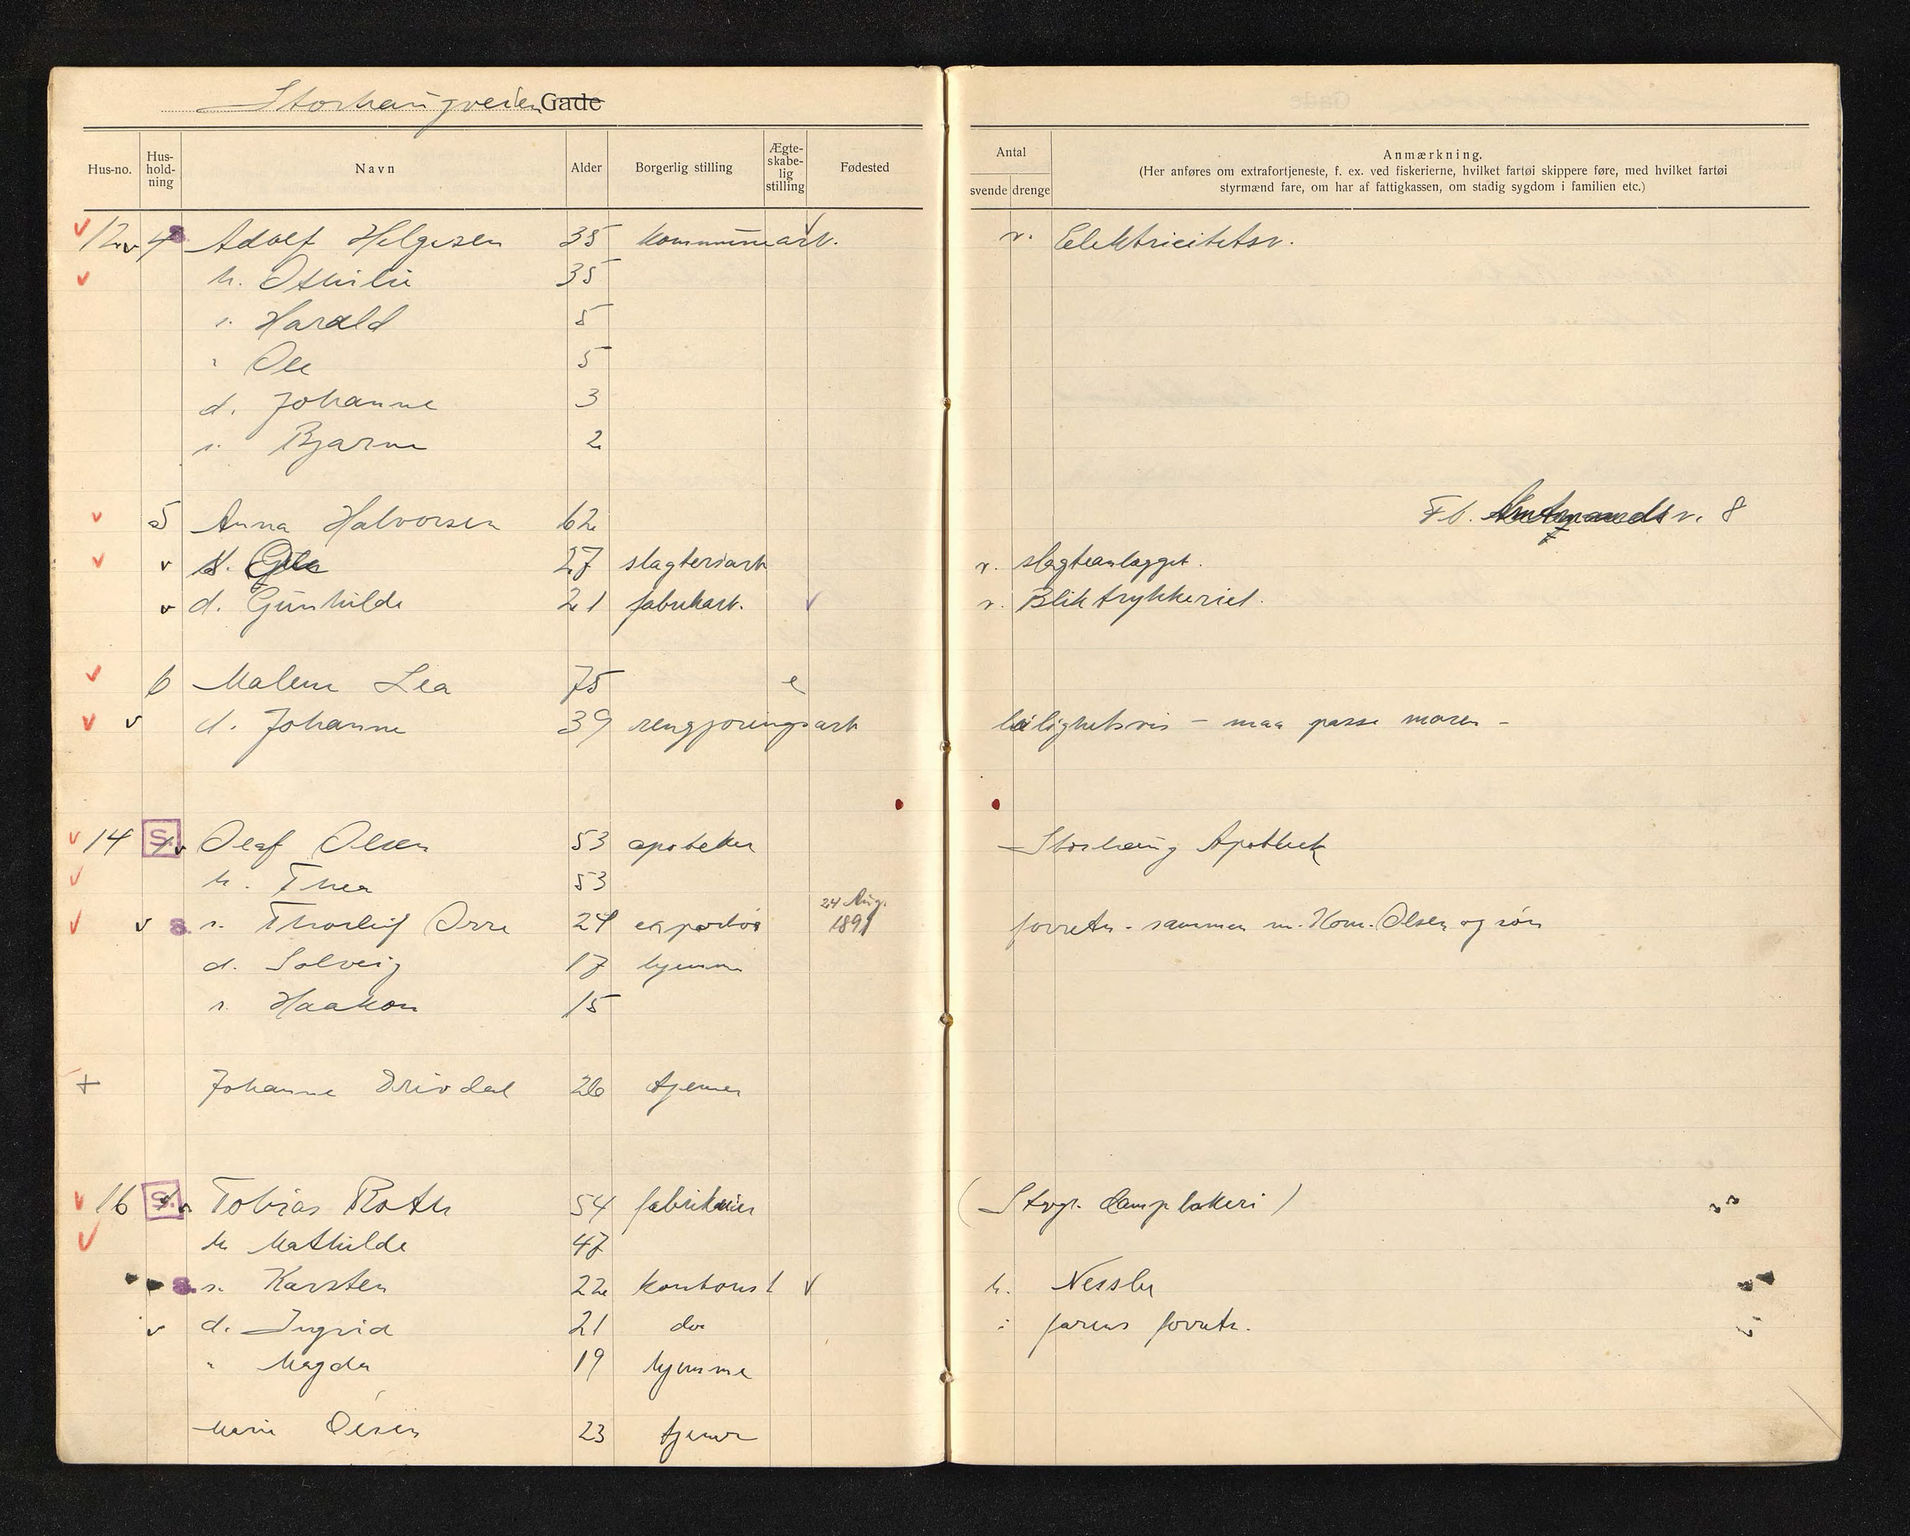 Storhaugveien Gade
Hus-no. Hus-hold-ning Navn Alder Borgerlig stilling Ægte-skabe-lig stilling Fødested Antal svende drenge Anmærkning.
(Her anføres om extrafortjeneste, f. ex. ved fiskerierne, hvilket fartøi skippere føre, med hvilket fartøi
styrmænd fare, om har af fattigkassen, om stadig sygdom i familien etc.)
12 4 Adolf Helgesen 35 kommunearb. v. Elektricitetsv.
h. Othilie 35
s. Harald 5
" Ole 5
d. Johanne 3
s. Bjarne 2
5 Anna Halvorsen 62 Fb. Amtmandsv. 8
27 slagteriarb v. slagteanlægget.
d. Gunhilde 21 fabrikarb. v. Bliktrykkeriet.
6 Malene Lea 75 e
d. Johanne 39 rengjøringsarb leilighetsvis - maa passe moren -
14 S Olaf Olsen 53 apoteker Storhaug Apothek
h. Thea 53
s. Thorleif Orre 24 exportør 24 Aug. 1891 forretn. sammen m. Kom. Olsen og søn
d. Solveig 17 hjemme
s. Haakon 15
+ Johanne Drivdal 26 tjener
16 S. Tobias Roth 54 fabrikeier (Stvgr. dampbakeri)
h Mathilde 47
s. Karsten 22 kontorist h. Nessler
d. Ingrid 21 do i farens forretn.
" Magda 19 hjemme
Marie Olsen 23 tjener